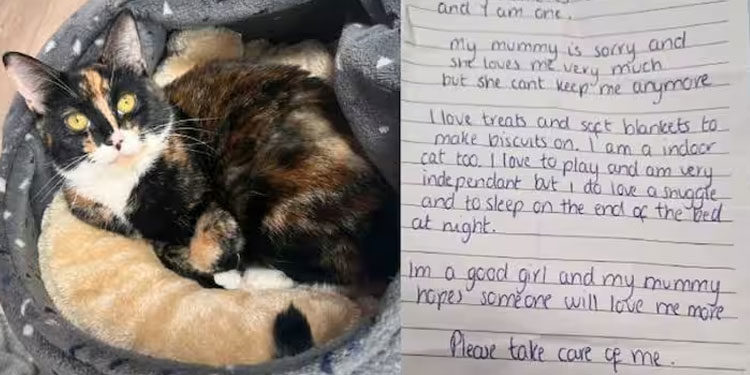 and I am one.
my mummy is sorry and
she loves me very much
but she cant keep me anymore
I love treats and soft blankets to
make biscuits on. I am a indoor
cat too. I love to play and am very
independant but I do love a snuggle
and to sleep on the end of the bed
at night.
Im a good girl and my mummy
hopes someone will love me more
Please take care of me.